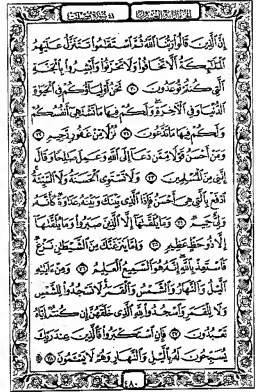 الجزء الرابع والعشرون ٤١ سورة فصلت
إِنَّ الَّذِينَ قَالُوا رَبُّنَا اللَّهُ ثُمَّ اسْتَقَامُوا تَتَنَزَّلُ عَلَيْهِمُ
الْمَلَائِكَةُ أَلَّا تَخَافُوا وَلَا تَحْزَنُوا وَأَبْشِرُوا بِالْجَنَّةِ
الَّتِي كُنتُمْ تُوعَدُونَ ٣٠ نَحْنُ أَوْلِيَاؤُكُمْ فِي الْحَيَاةِ
الدُّنْيَا وَفِي الْآخِرَةِ وَلَكُمْ فِيهَا مَا تَشْتَهِي أَنفُسُكُمْ
وَلَكُمْ فِيهَا مَا تَدَّعُونَ ٣١ نُزُلًا مِّنْ غَفُورٍ رَّحِيمٍ ٣٢
وَمَنْ أَحْسَنُ قَوْلًا مِّمَّن دَعَا إِلَى اللَّهِ وَعَمِلَ صَالِحًا وَقَالَ
إِنَّنِي مِنَ الْمُسْلِمِينَ ٣٣ وَلَا تَسْتَوِي الْحَسَنَةُ وَلَا السَّيِّئَةُ
ادْفَعْ بِالَّتِي هِيَ أَحْسَنُ فَإِذَا الَّذِي بَيْنَكَ وَبَيْنَهُ عَدَاوَةٌ كَأَنَّهُ
وَلِيٌّ حَمِيمٌ ٣٤ وَمَا يُلَقَّاهَا إِلَّا الَّذِينَ صَبَرُوا وَمَا يُلَقَّاهَا
إِلَّا ذُو حَظٍّ عَظِيمٍ ٣٥ وَإِمَّا يَنزَغَنَّكَ مِنَ الشَّيْطَانِ نَزْغٌ
فَاسْتَعِذْ بِاللَّهِ إِنَّهُ هُوَ السَّمِيعُ الْعَلِيمُ ٣٦ وَمِنْ آيَاتِهِ
اللَّيْلُ وَالنَّهَارُ وَالشَّمْسُ وَالْقَمَرُ لَا تَسْجُدُوا لِلشَّمْسِ
وَلَا لِلْقَمَرِ وَاسْجُدُوا لِلَّهِ الَّذِي خَلَقَهُنَّ إِن كُنتُمْ إِيَّاهُ
تَعْبُدُونَ ٣٧ فَإِنِ اسْتَكْبَرُوا فَالَّذِينَ عِندَ رَبِّكَ
يُسَبِّحُونَ لَهُ بِاللَّيْلِ وَالنَّهَارِ وَهُمْ لَا يَسْأَمُونَ ٣٨
٤٨٠